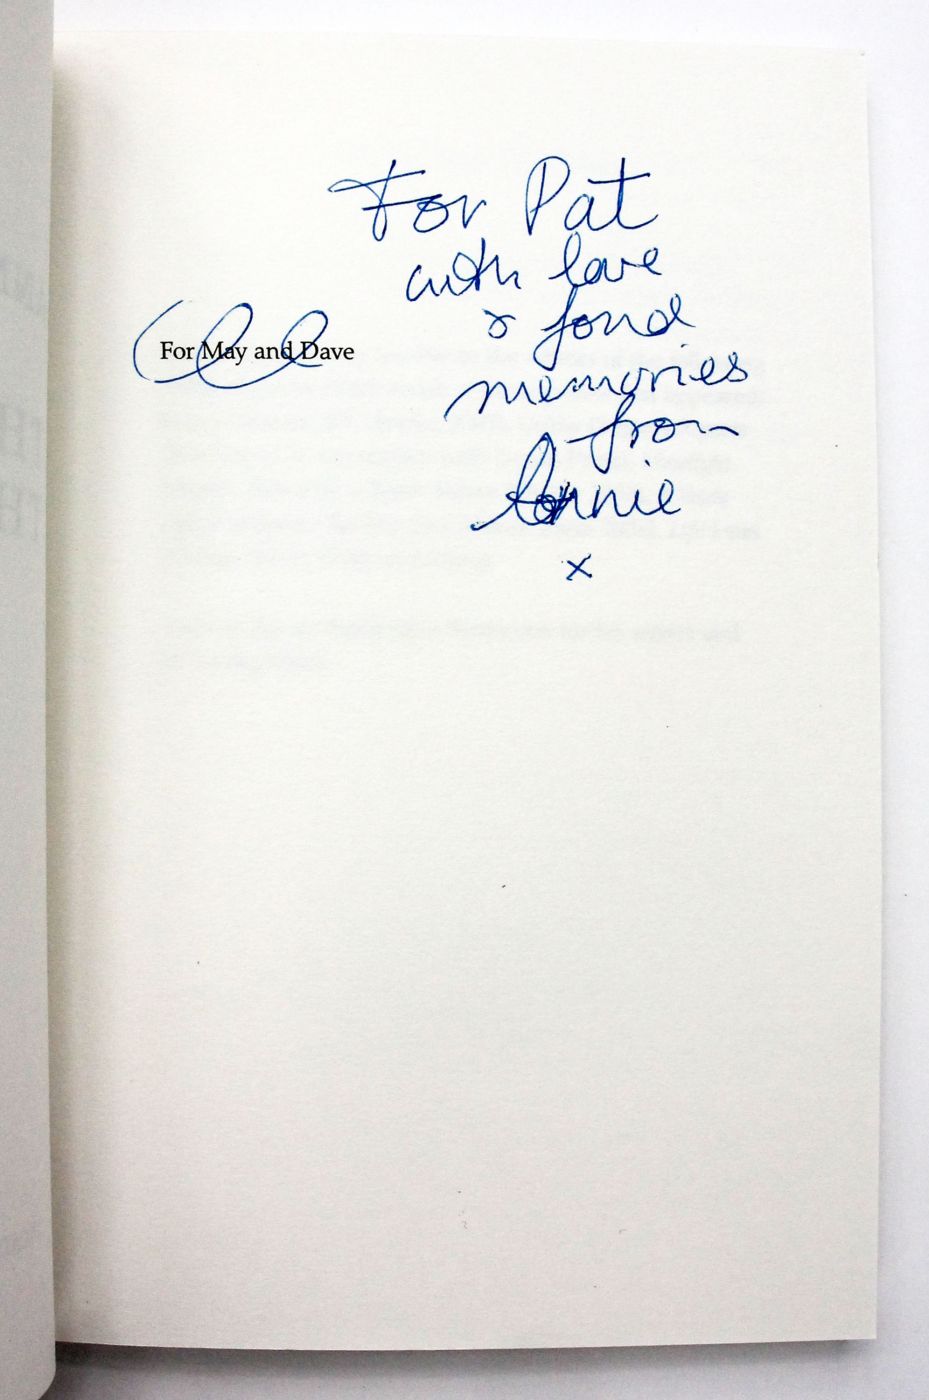 For Pat
with love
& fond
For May and Dave
memories
from
x